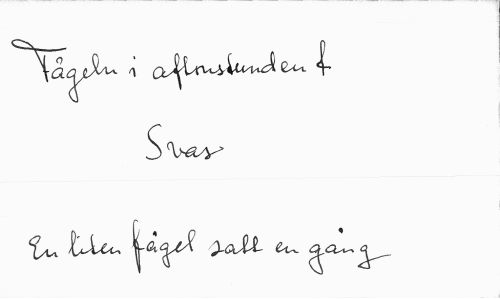 Fågeln i aftonstunden f
Svar
En liten fågel satt en gång